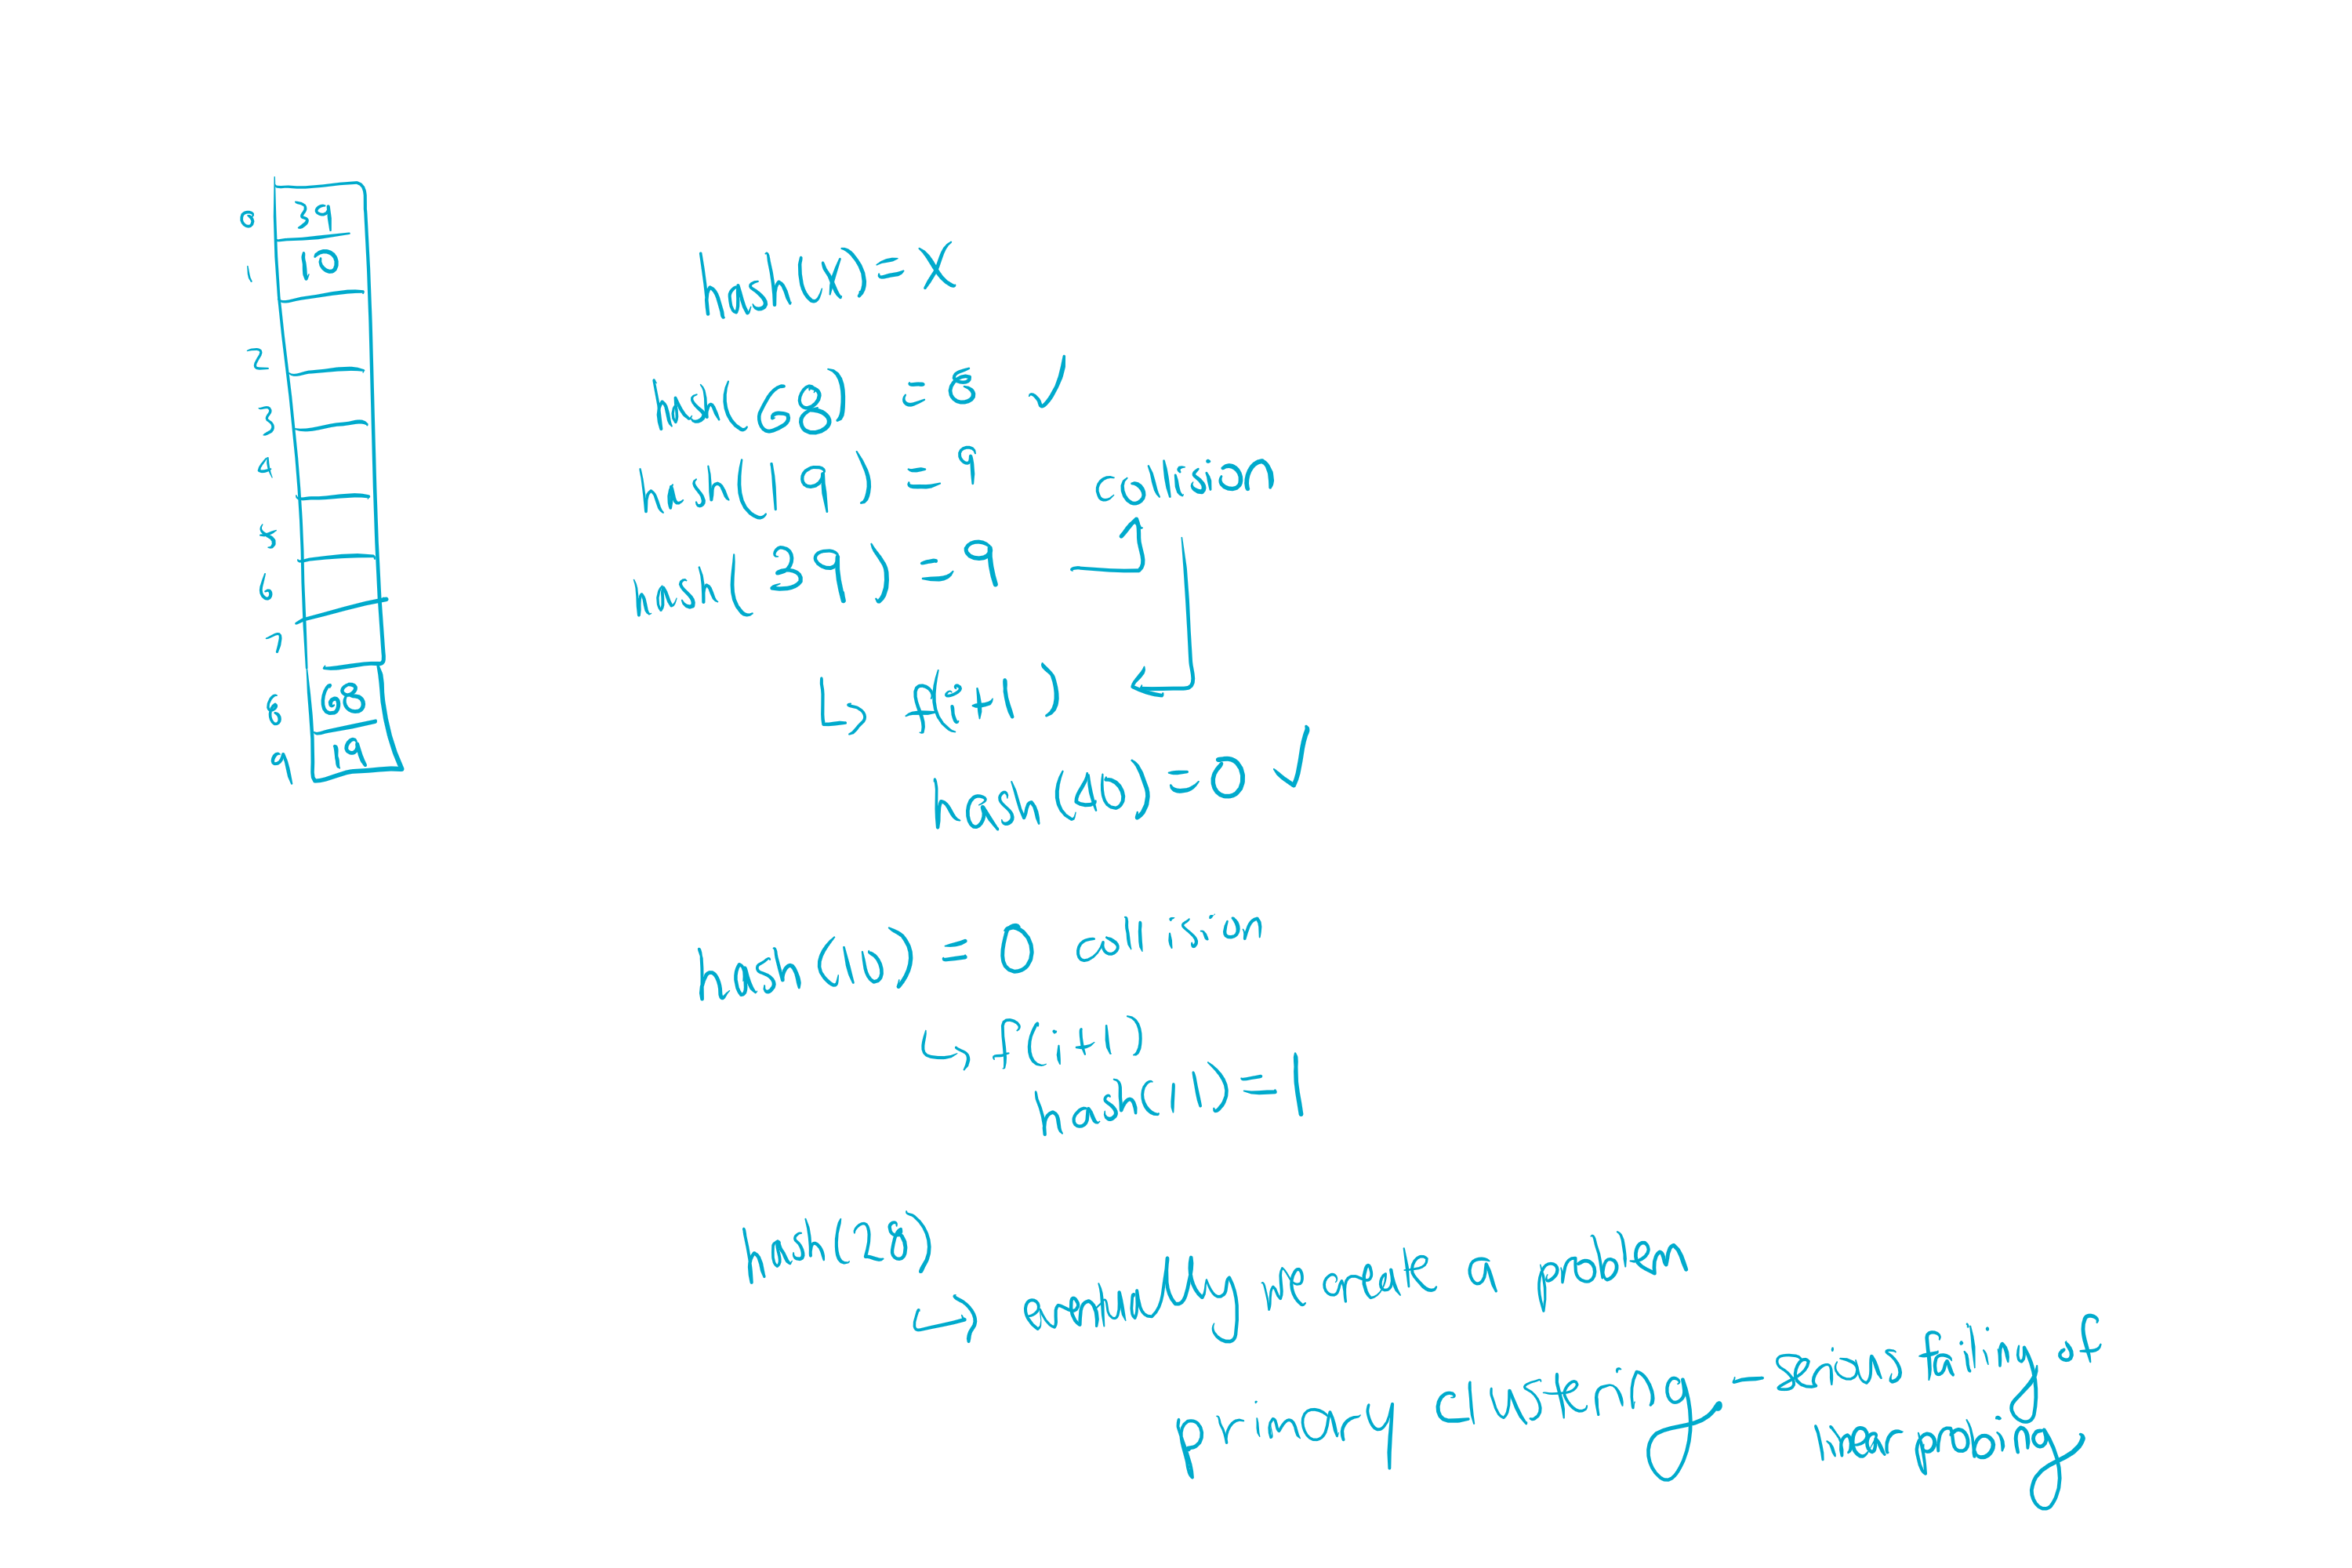 0 39
1 10
2
3
4
5
6
7
8 68
9 19
hash(x) = x
hash(68) = 8 ✓
hash(19) = 9
collision
hash(39) = 9
↳ f(i+1)
hash(40) = 0 ✓
hash(10) = 0 collision
↳ f(i+1)
hash(11) = 1
hash(28)
↳ eventually we create a problem
primary clustering - serious failing of
linear probing